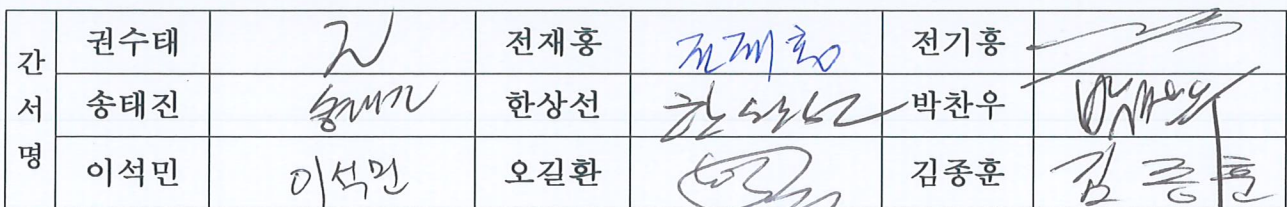 간서명
권수태 전재홍 전재홍 전기흥
송태진 송태진 한상선 한상선 박찬우
이석민 이석민 오길환 김종훈 김종훈